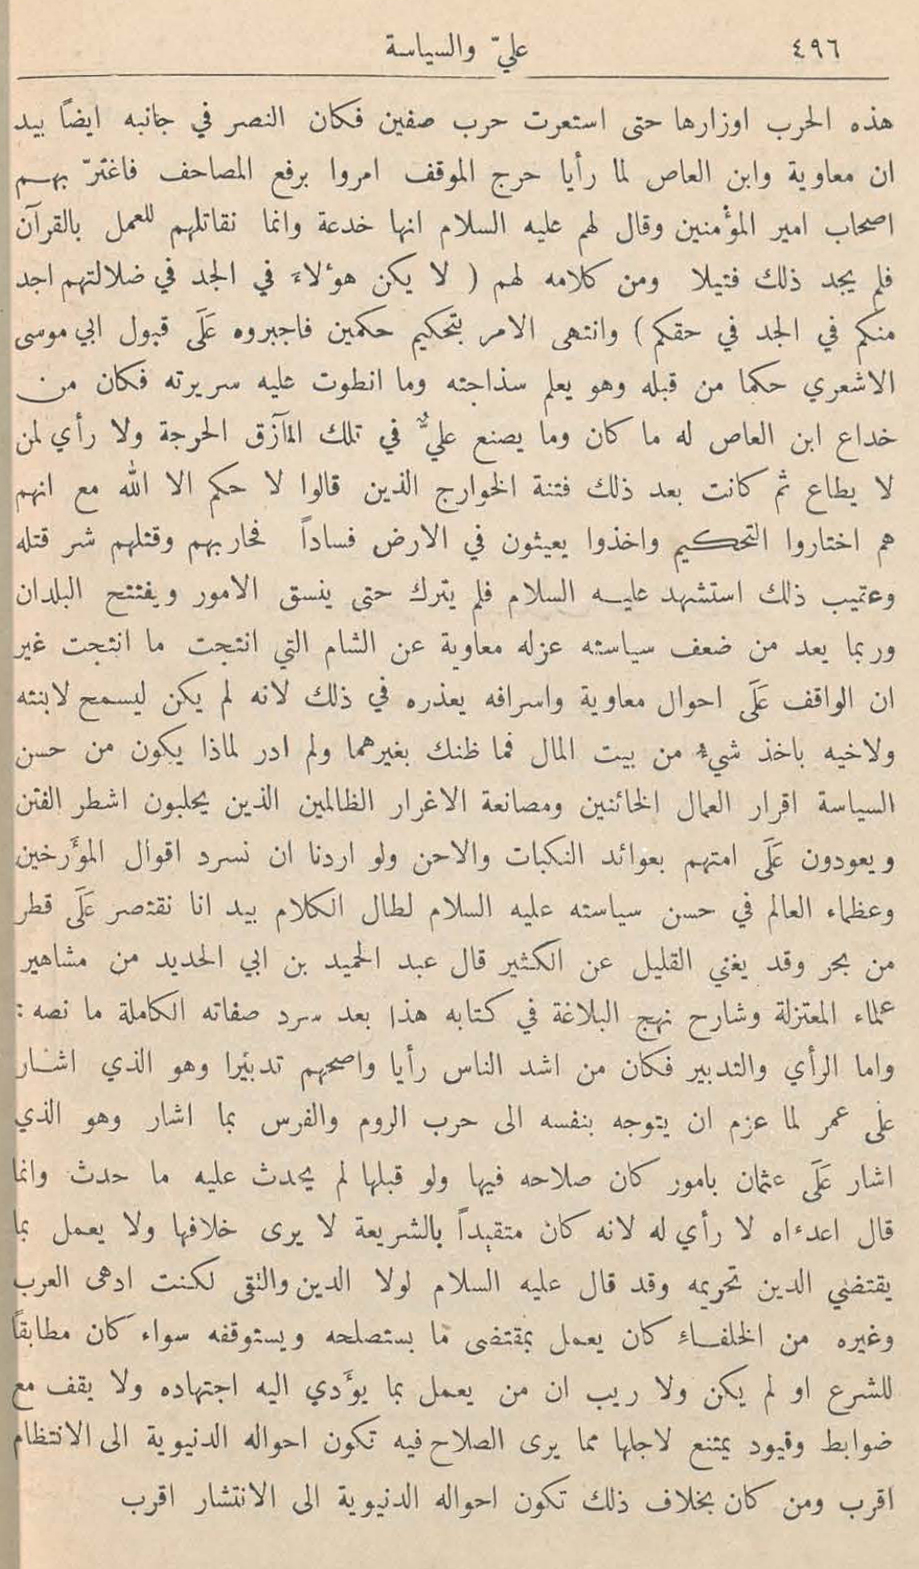 ٤٩٦ عليّ والسياسة
هذه الحرب اوزارها حتى استعرت حرب صفين فكان النصر في جانبه ايضاً بيد
ان معاوية وابن العاص لما رأيا حرج الموقف امروا برفع المصاحف فاغترّ بهم
اصحاب امير المؤمنين وقال لهم عليه السلام انها خدعة وانما نقاتلهم للعمل بالقرآن
فلم يجد ذلك فتيلا ومن كلامه لهم ( لا يكن هؤلاء في الجد في ضلالتهم اجد
منكم في الجد في حقكم ) وانتهى الامر بتحكيم حكمين فاجبروه عَلَى قبول ابي موسى
الاشعري حكما من قبله وهو يعلم سذاجته وما انطوت عليه سريرته فكان من
خداع ابن العاص له ما كان وما يصنع عليٌّ في تلك المآزق الحرجة ولا رأي لمن
لا يطاع ثم كانت بعد ذلك فتنة الخوارج الذين قالوا لا حكم الا الله مع انهم
هم اختاروا التحكيم واخذوا يعيثون في الارض فساداً فحاربهم وقتلهم شر قتله
وعقيب ذلك استشهد عليه السلام فلم يترك حتى ينسق الامور ويفتتح البلدان
وربما يعد من ضعف سياسته عزله معاوية عن الشام التي انتجت ما انتجت غير
ان الواقف عَلَى احوال معاوية واسرافه يعذره في ذلك لانه لم يكن ليسمح لابنته
ولاخيه باخذ شيء من بيت المال فما ظنك بغيرهما ولم ادر لماذا يكون من حسن
السياسة اقرار العمال الخائنين ومصانعة الاغرار الظالمين الذين يحلبون اشطر الفتن
ويعودون عَلَى امتهم بعوائد النكبات والاحن ولو اردنا ان نسرد اقوال المؤرخين
وعظماء العالم في حسن سياسته عليه السلام لطال الكلام بيد انا نقتصر عَلَى قطر
من بحر وقد يغني القليل عن الكثير قال عبد الحميد بن ابي الحديد من مشاهير
علماء المعتزلة وشارح نهج البلاغة في كتابه هذا بعد سرد صفاته الكاملة ما نصه :
واما الرأي والتدبير فكان من اشد الناس رأيا واصحهم تدبيرا وهو الذي اشار
على عمر لما عزم ان يتوجه بنفسه الى حرب الروم والفرس بما اشار وهو الذي
اشار عَلَى عثمان بامور كان صلاحه فيها ولو قبلها لم يحدث عليه ما حدث وانما
قال اعداءه لا رأي له لانه كان متقيداً بالشريعة لا يرى خلافها ولا يعمل بما
يقتضي الدين تحريمه وقد قال عليه السلام لولا الدين والتقى لكنت ادهى العرب
وغيره من الخلفاء كان يعمل بمقتضى ما يستصلحه ويستوقفه سواء كان مطابقاً
للشرع او لم يكن ولا ريب ان من يعمل بما يؤدي اليه اجتهاده ولا يقف مع
ضوابط وقيود يمتنع لاجلها مما يرى الصلاح فيه تكون احواله الدنيوية الى الانتظام
اقرب ومن كان بخلاف ذلك تكون احواله الدنيوية الى الانتشار اقرب